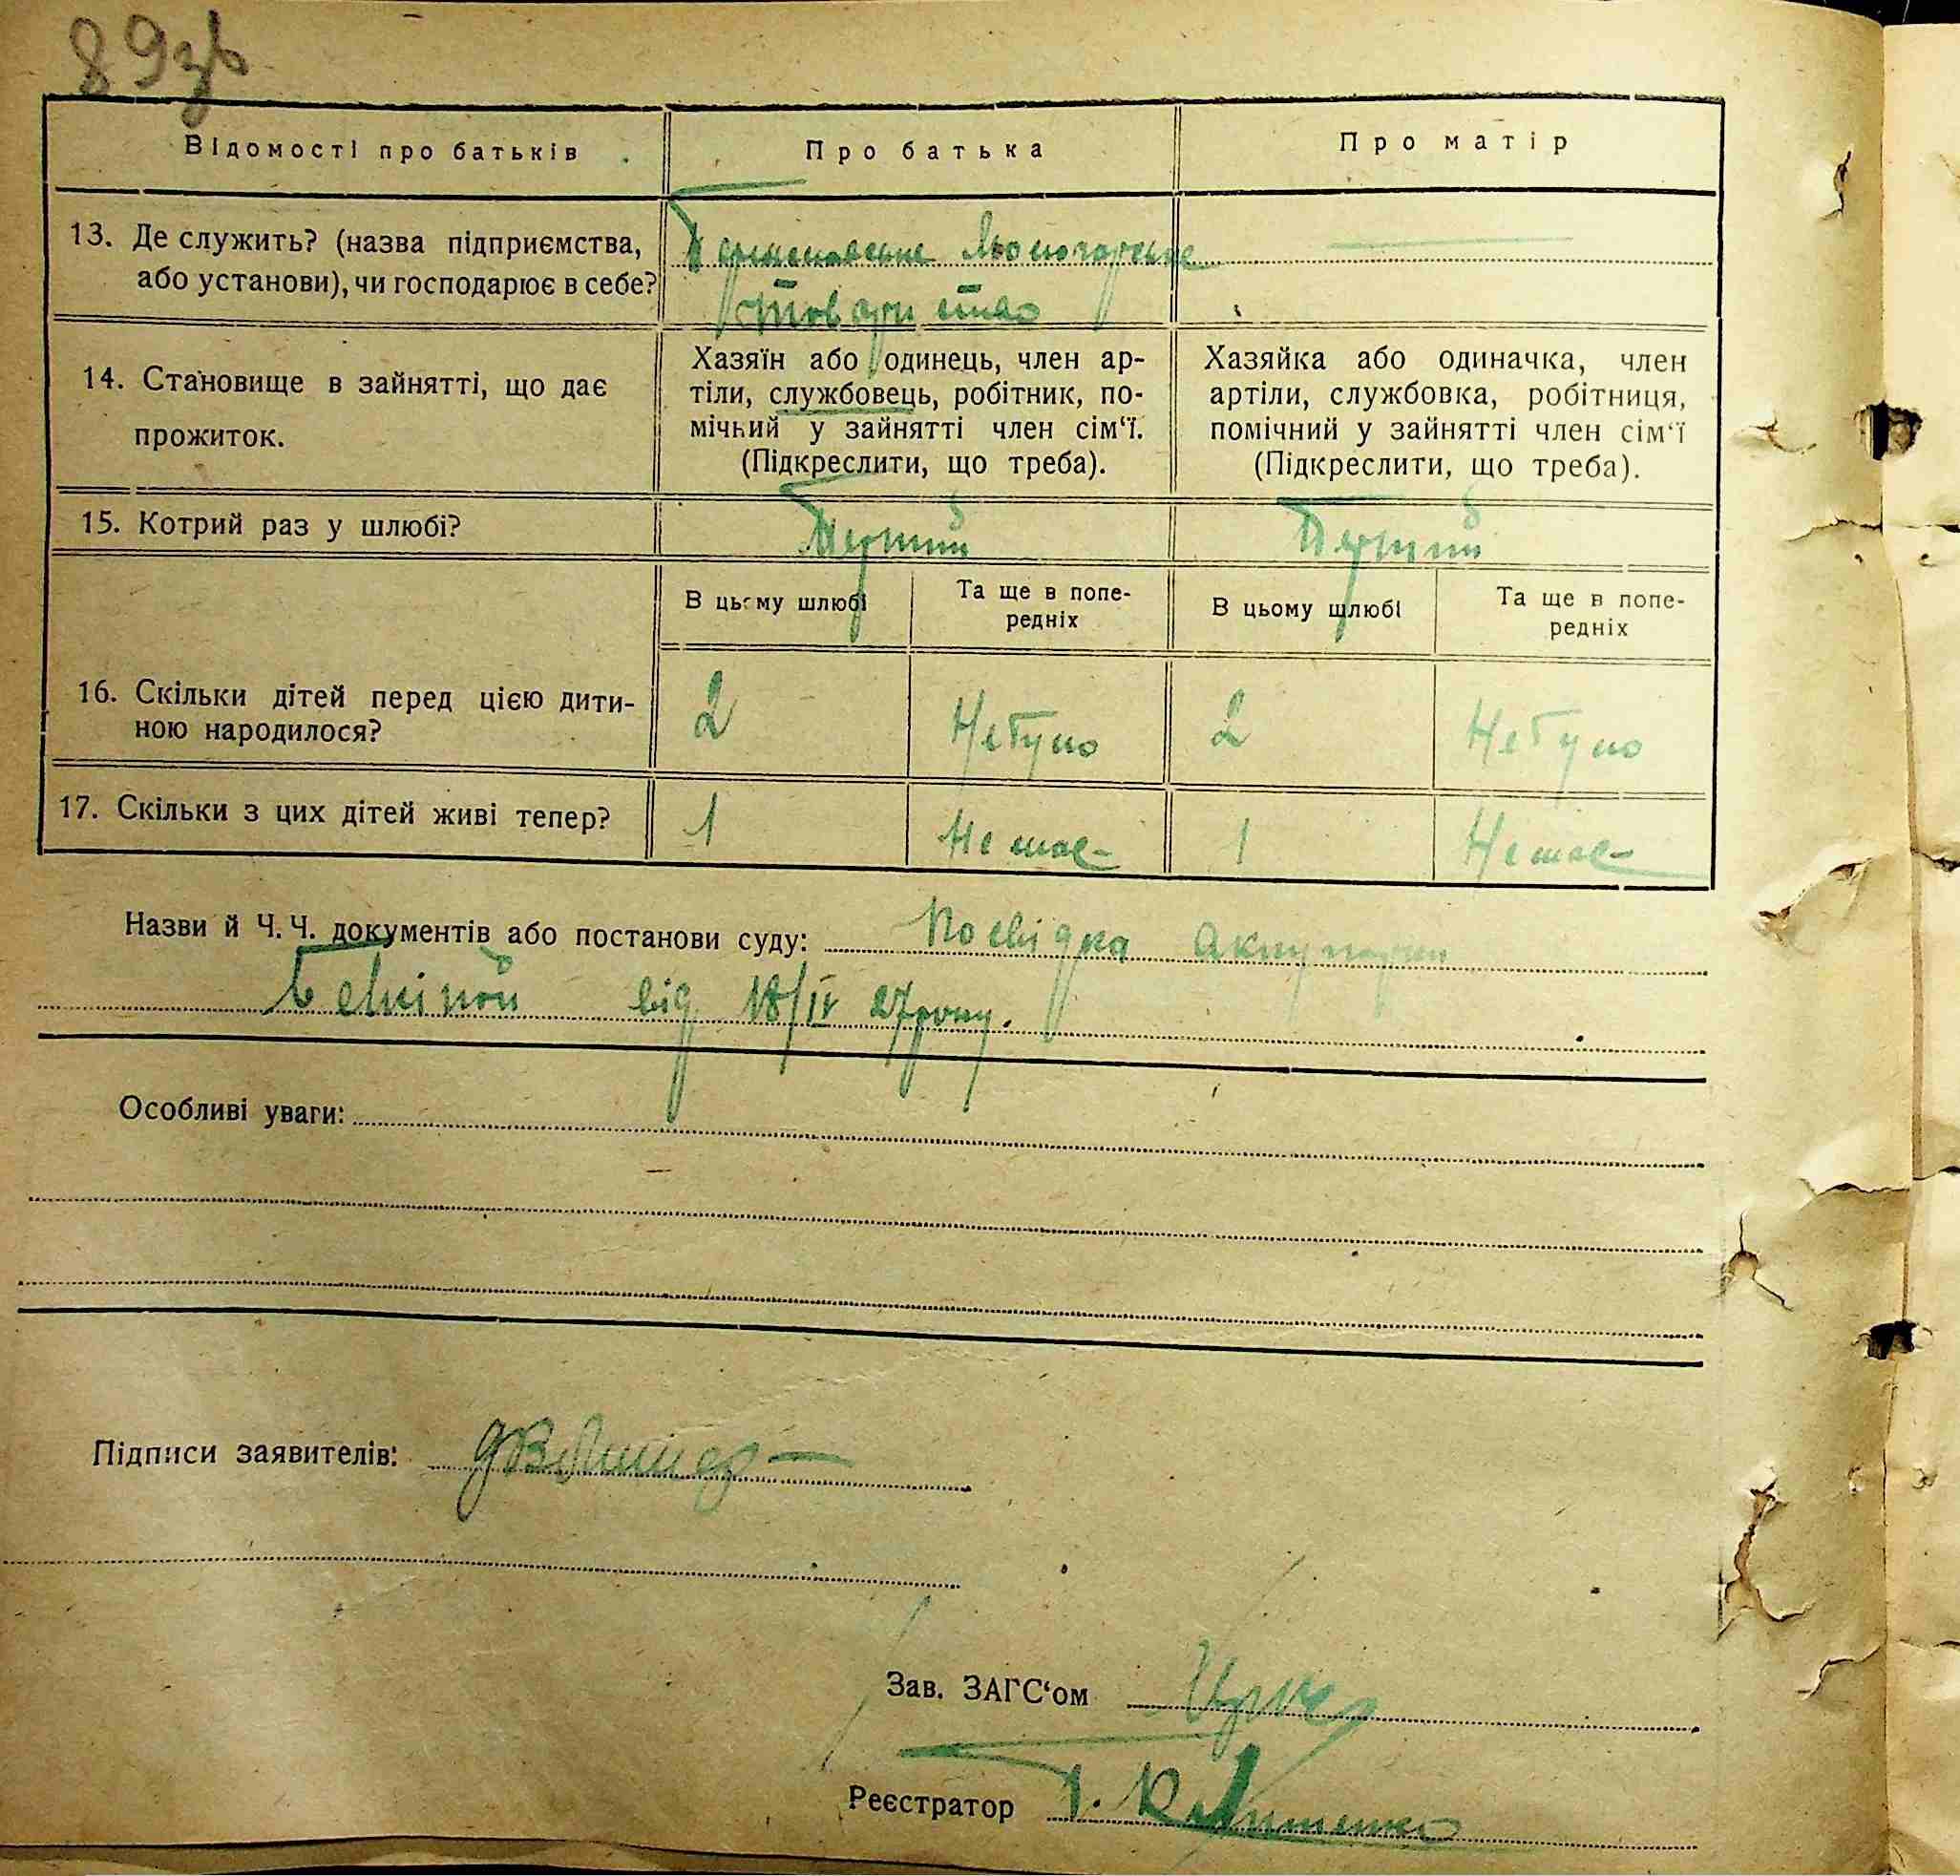 89зв
Відомості про батьків
Про батька
Про матір
13. Де служить? (назва підприємства,
або установи), чи господарює в себе?
товариство
14. Становище в зайнятті, що дає
прожиток.
Хазяїн або одинець, член ар-
тіли, службовець, робітник, по-
мічний у зайнятті член сім‘ї.
(Підкреслити, що треба).
Хазяйка або одиначка, член
артіли, службовка, робітниця,
помічний у зайнятті член сім‘ї
(Підкреслити, що треба).
15. Котрий раз у шлюбі?
Перший
Перший
В цьому шлюбі
Та ще в попе-
редніх
В цьому шлюбі
Та ще в попе-
редніх
16. Скільки дітей перед цією дити-
ною народилося?
2
Небуло
2
Небуло
17. Скільки з цих дітей живі тепер?
1
Немає
1
Немає
Назви й Ч. Ч. документів або постанови суду: Посвідка акушерки
від 18/IV 27 року.
Особливі уваги:
Підписи заявителів:
Зав. ЗАГС‘ом
Реєстратор